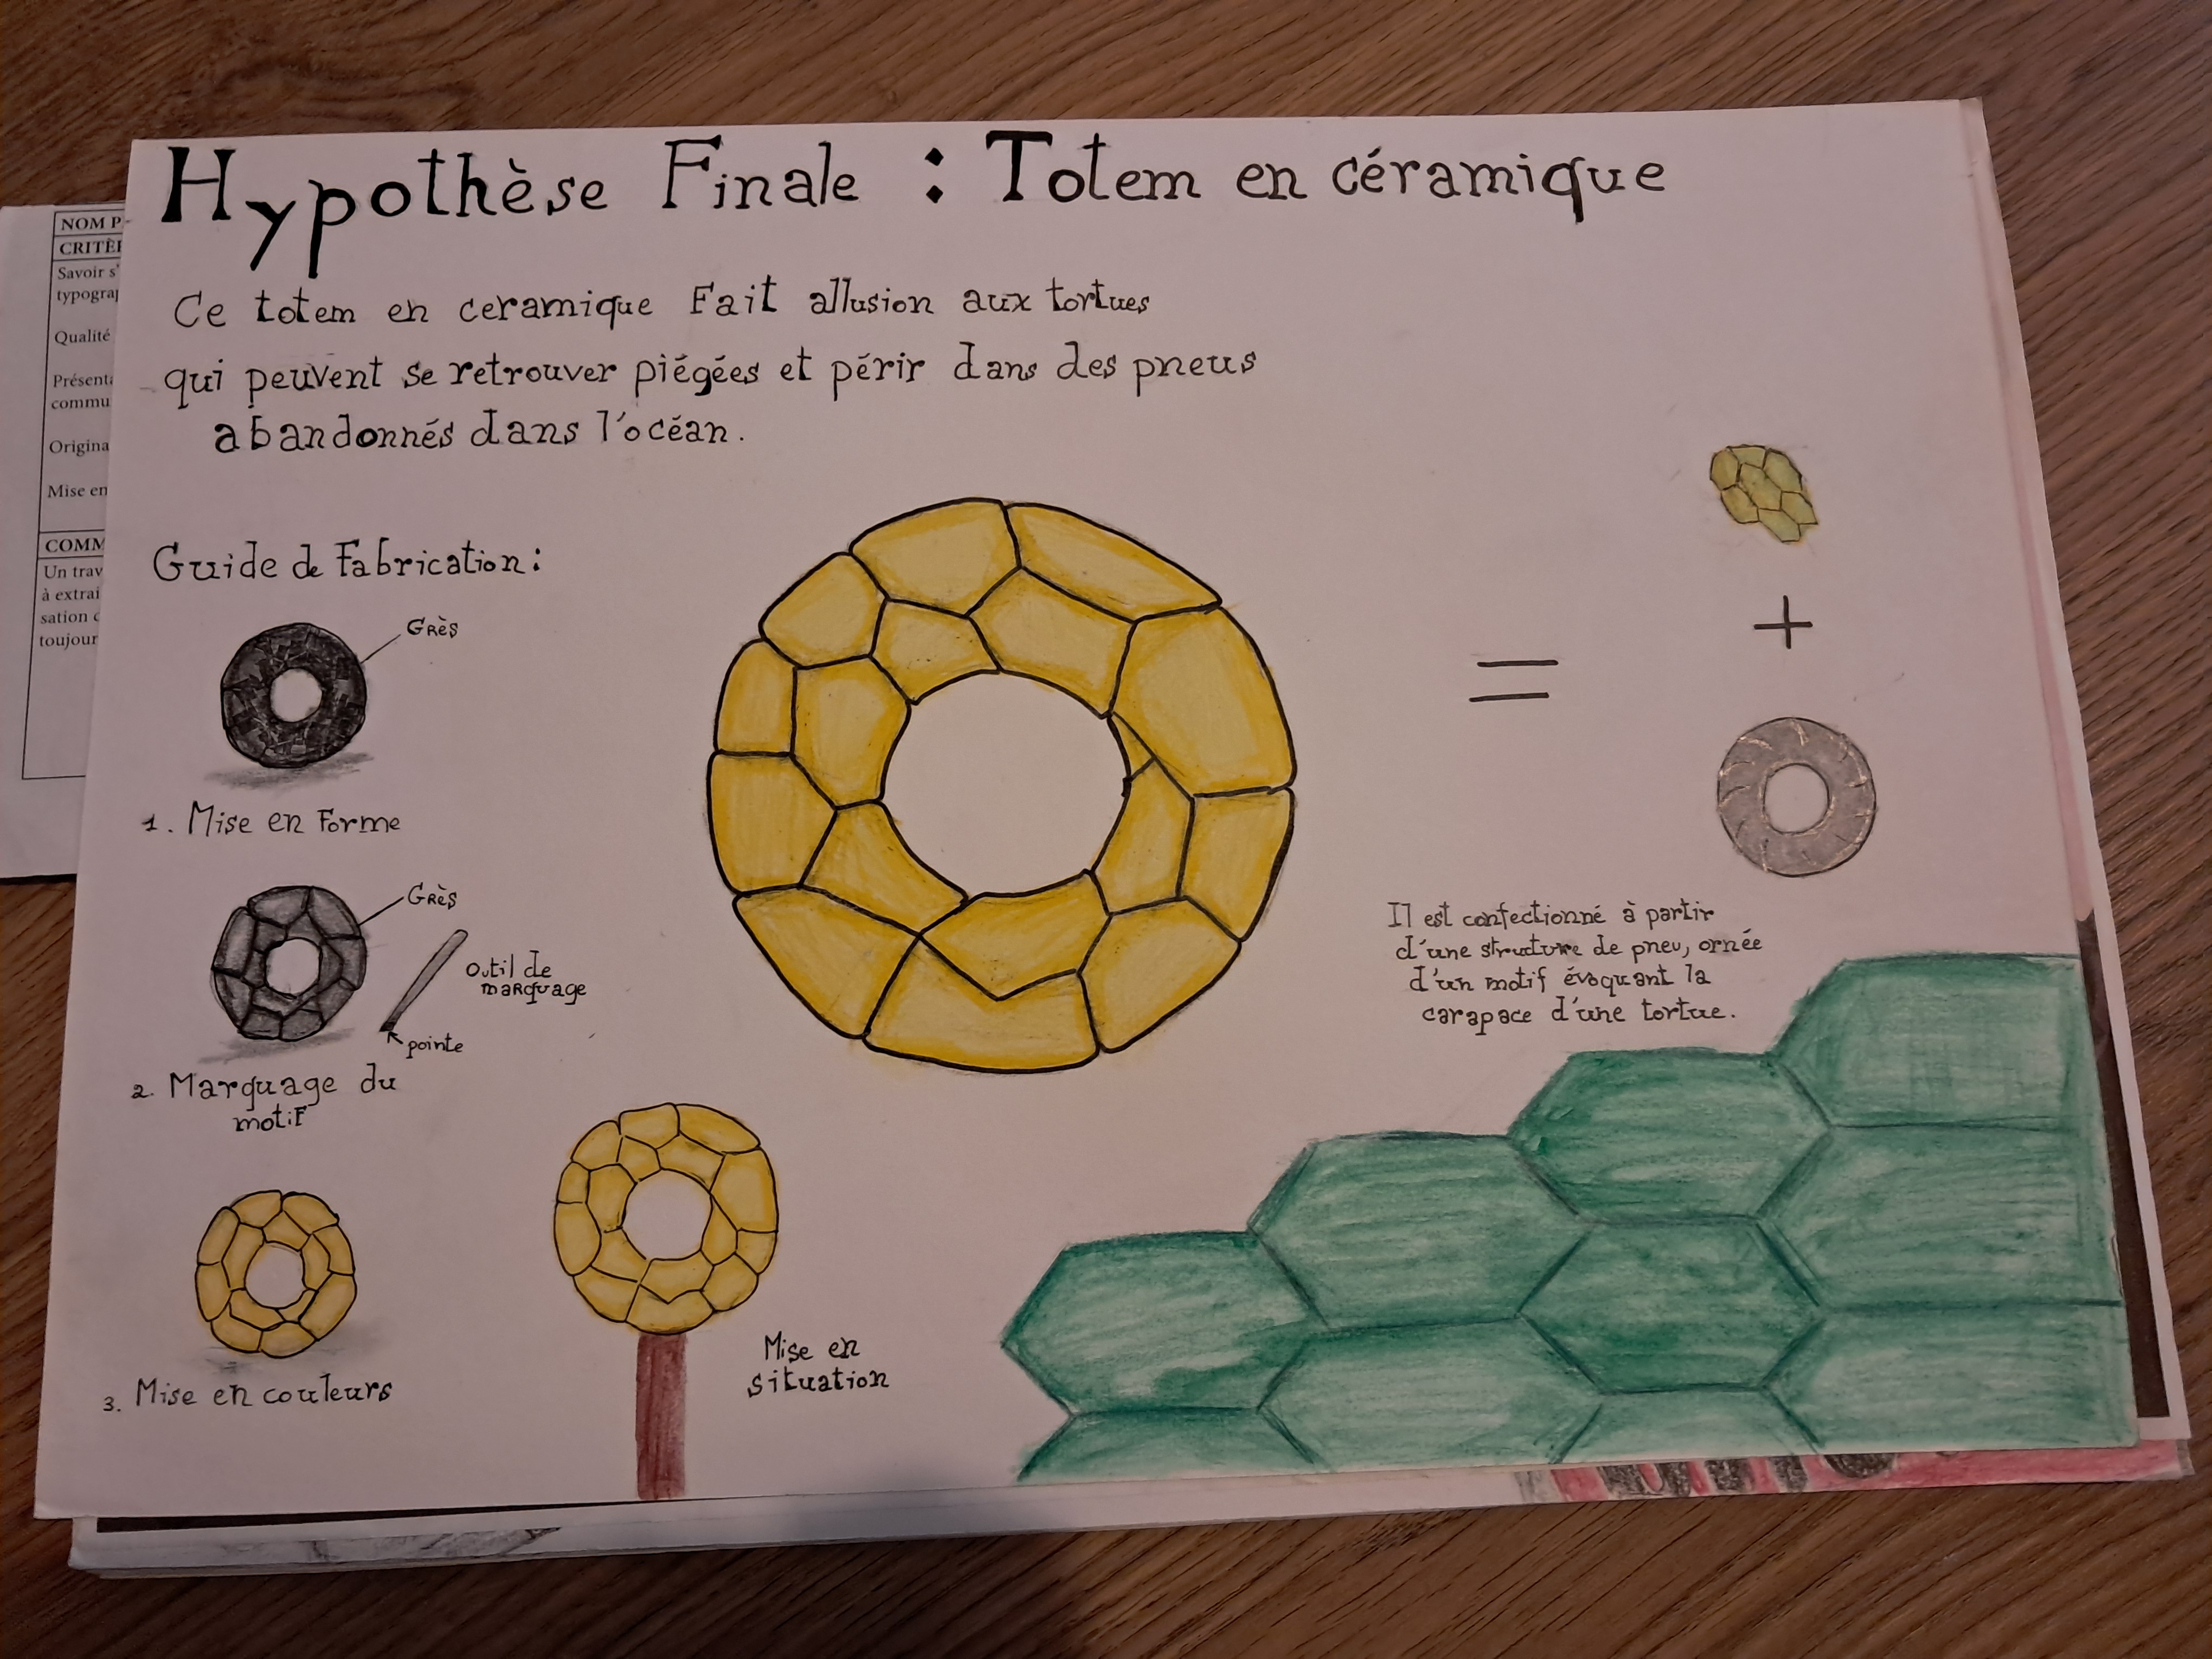 Hypothèse Finale : Totem en céramique
Ce totem en ceramique Fait allusion aux tortues
qui peuvent se retrouver piégées et périr dans des pneus
abandonnés dans l'océan.
Guide de Fabrication :
Grès
1. Mise en Forme
Grès
Outil de
marquage
pointe
2. Marquage du
motif
3. Mise en couleurs
Mise en
situation
=
+
Il est confectionné à partir
d'une structure de pneu, ornée
d'un motif évoquant la
carapace d'une tortue.
NOM P
CRITÈ
Savoir s'
typogra
Qualité
Présent
commu
Origina
Mise en
COMM
Un trav
à extrai
sation
toujour